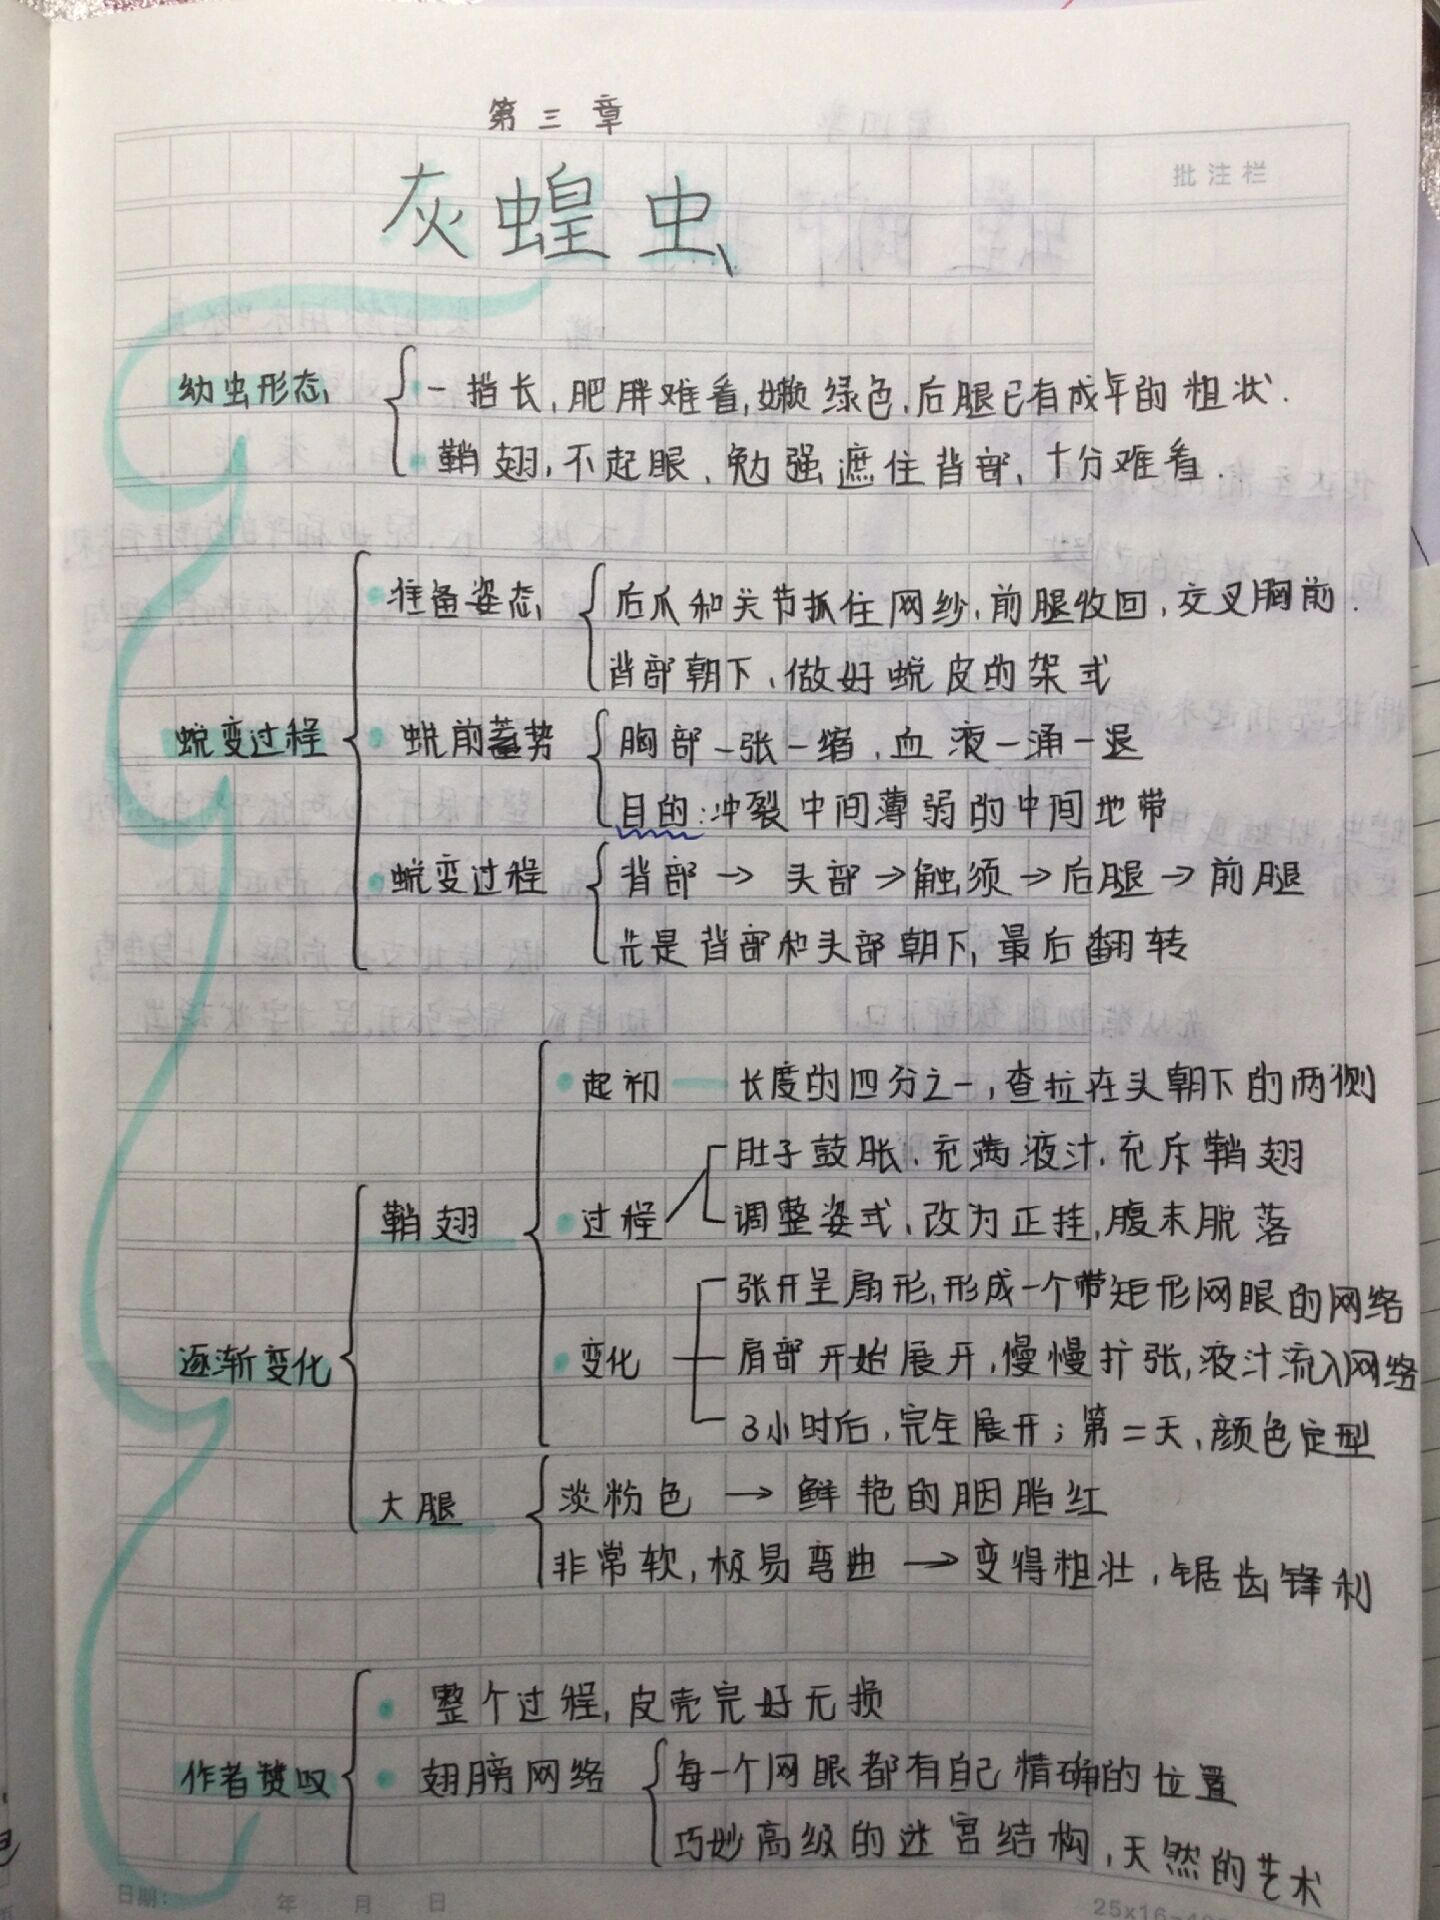 第三章
批注栏
灰蝗虫
幼虫形态
一指长,肥胖难看,嫩绿色,后腿已有成年的粗状.
鞘翅,不起眼、勉强遮住背部,十分难看.
准备姿态
后爪和关节抓住网纱,前腿收回,交叉胸前.
背部朝下、做好蜕皮的架式
蜕变过程
蜕前蓄势
胸部一张一缩,血液一涌一退
目的:冲裂中间薄弱的中间地带
蜕变过程
背部→头部→触须→后腿→前腿
先是背部和头部朝下,最后翻转
起初 — 长度的四分之一,查拉在头朝下的两侧
肚子鼓胀、充满液汁,充斥鞘翅
鞘翅
过程
调整姿式、改为正挂,腹末脱落
张开呈扇形,形成一个带矩形网眼的网络
逐渐变化
变化
肩部开始展开,慢慢扩张,液汁流入网络
3小时后,完全展开;第二天,颜色定型
大腿
淡粉色→鲜艳的胭脂红
非常软,极易弯曲→变得粗壮,锯齿锋利
整个过程,皮壳完好无损
作者赞叹
翅膀网络
每一个网眼都有自己精确的位置
巧妙高级的迷宫结构,天然的艺术
日期: 年 月 日